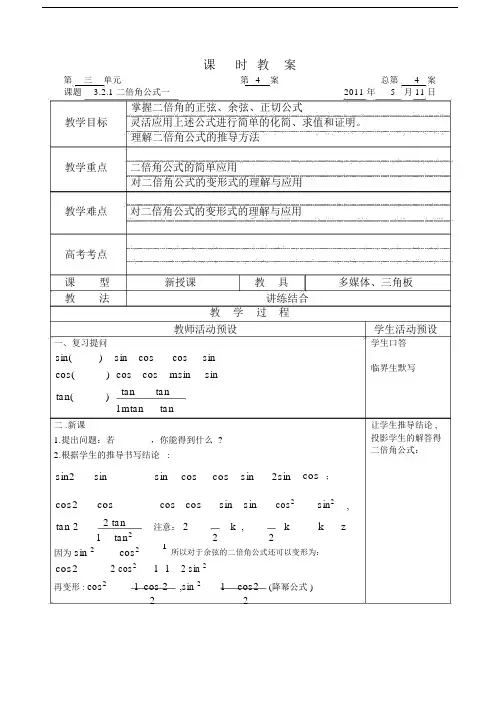 课 时 教 案
第 三 单元 第 4 案 总第 4 案
课题 3.2.1 二倍角公式一 2011 年 5 月 11 日
教学目标
掌握二倍角的正弦、余弦、正切公式
灵活应用上述公式进行简单的化简、求值和证明。
理解二倍角公式的推导方法
教学重点
二倍角公式的简单应用
对二倍角公式的变形式的理解与应用
教学难点
对二倍角公式的变形式的理解与应用
高考考点
课 型 新授课 教 具 多媒体、三角板
教 法 讲练结合
教 学 过 程
教师活动预设 学生活动预设
一、复习提问
sin( ) sin cos cos sin
cos( ) cos cos msin sin
tan( ) tan tan
1mtan tan
学生口答
临界生默写
二 .新课
1.提出问题：若 ，你能得到什么 ?
2.根据学生的推导书写结论 :
sin2 sin sin cos cos sin 2sin cos ；
cos2 cos cos cos sin sin cos2 sin2 ,
tan 2 2 tan
1 tan2
注意： 2 k , k k z
2 2
因为 sin 2 cos2 1 所以对于余弦的二倍角公式还可以变形为：
cos2 2 cos2 1 1 2 sin 2
再变形 : cos2 1 cos 2 ,sin 2 1 cos2 (降幂公式 )
2 2
让学生推导结论 ,
投影学生的解答得
二倍角公式：